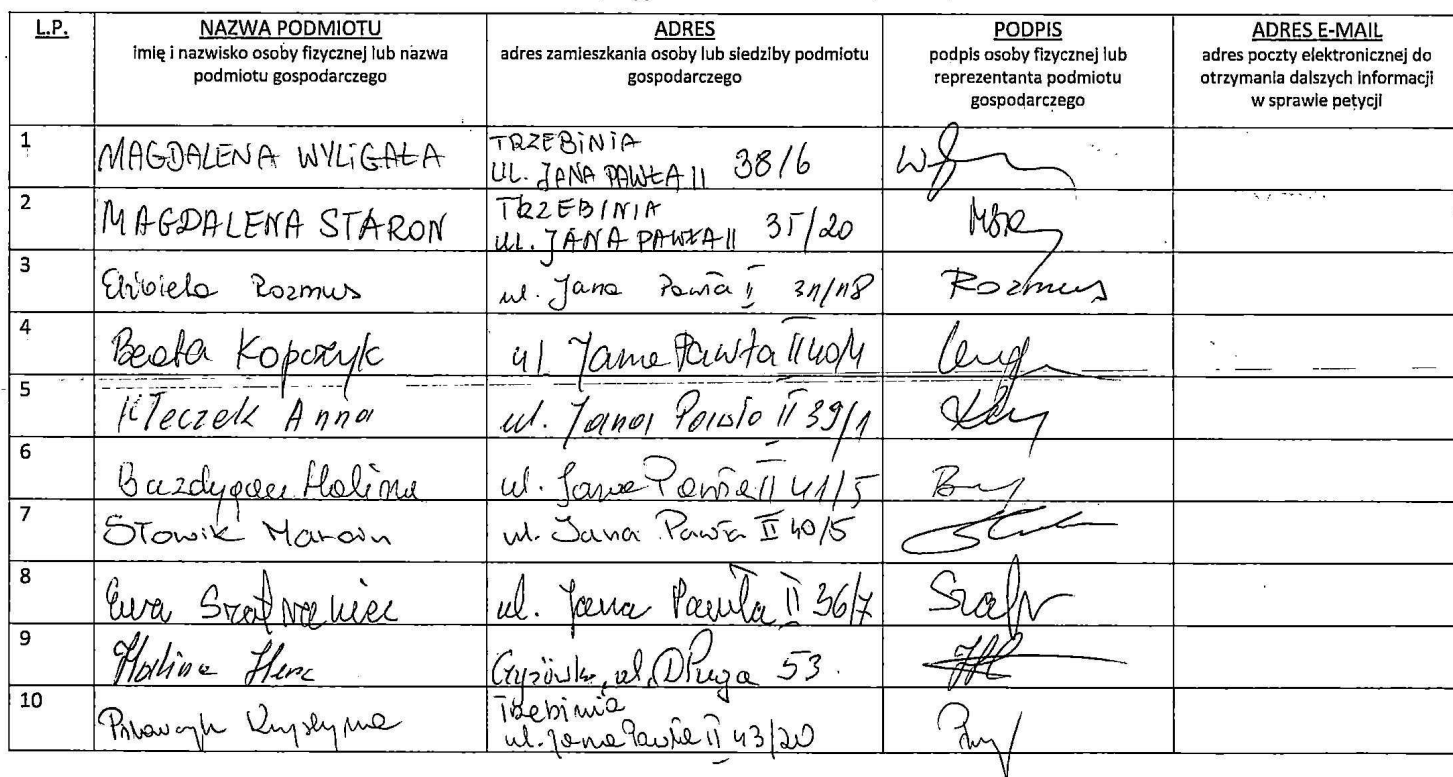 L.P.
NAZWA PODMIOTU
imię i nazwisko osoby fizycznej lub nazwa
podmiotu gospodarczego
ADRES
adres zamieszkania osoby lub siedziby podmiotu
gospodarczego
PODPIS
podpis osoby fizycznej lub
reprezentanta podmiotu
gospodarczego
ADRES E-MAIL
adres poczty elektronicznej do
otrzymania dalszych informacji
w sprawie petycji
1
MAGDALENA WYLIGAŁA
TRZEBINIA
UL. JANA PAWŁA II 38/6
2
MAGDALENA STAROŃ
TRZEBINIA
UL. JANA PAWŁA II 35/20
3
Elżbieta Rozmus
ul. Jana Pawła II 31/18
Rozmus
4
Beata Kopczyk
ul Jana Pawła II 40/1
5
Kłeczek Anna
ul. Jana Pawła II 39/1
6
Bazdygan Halina
ul. Jana Pawła II 41/5
7
Słowik Marcin
ul. Jana Pawła II 40/5
8
Ewa Szafraniec
ul. Jana Pawła II 36/7
Szafr
9
Halina Herc
ul. Długa 53.
10
Krystyna
Trzebinia
ul. Jana Pawła II 43/20